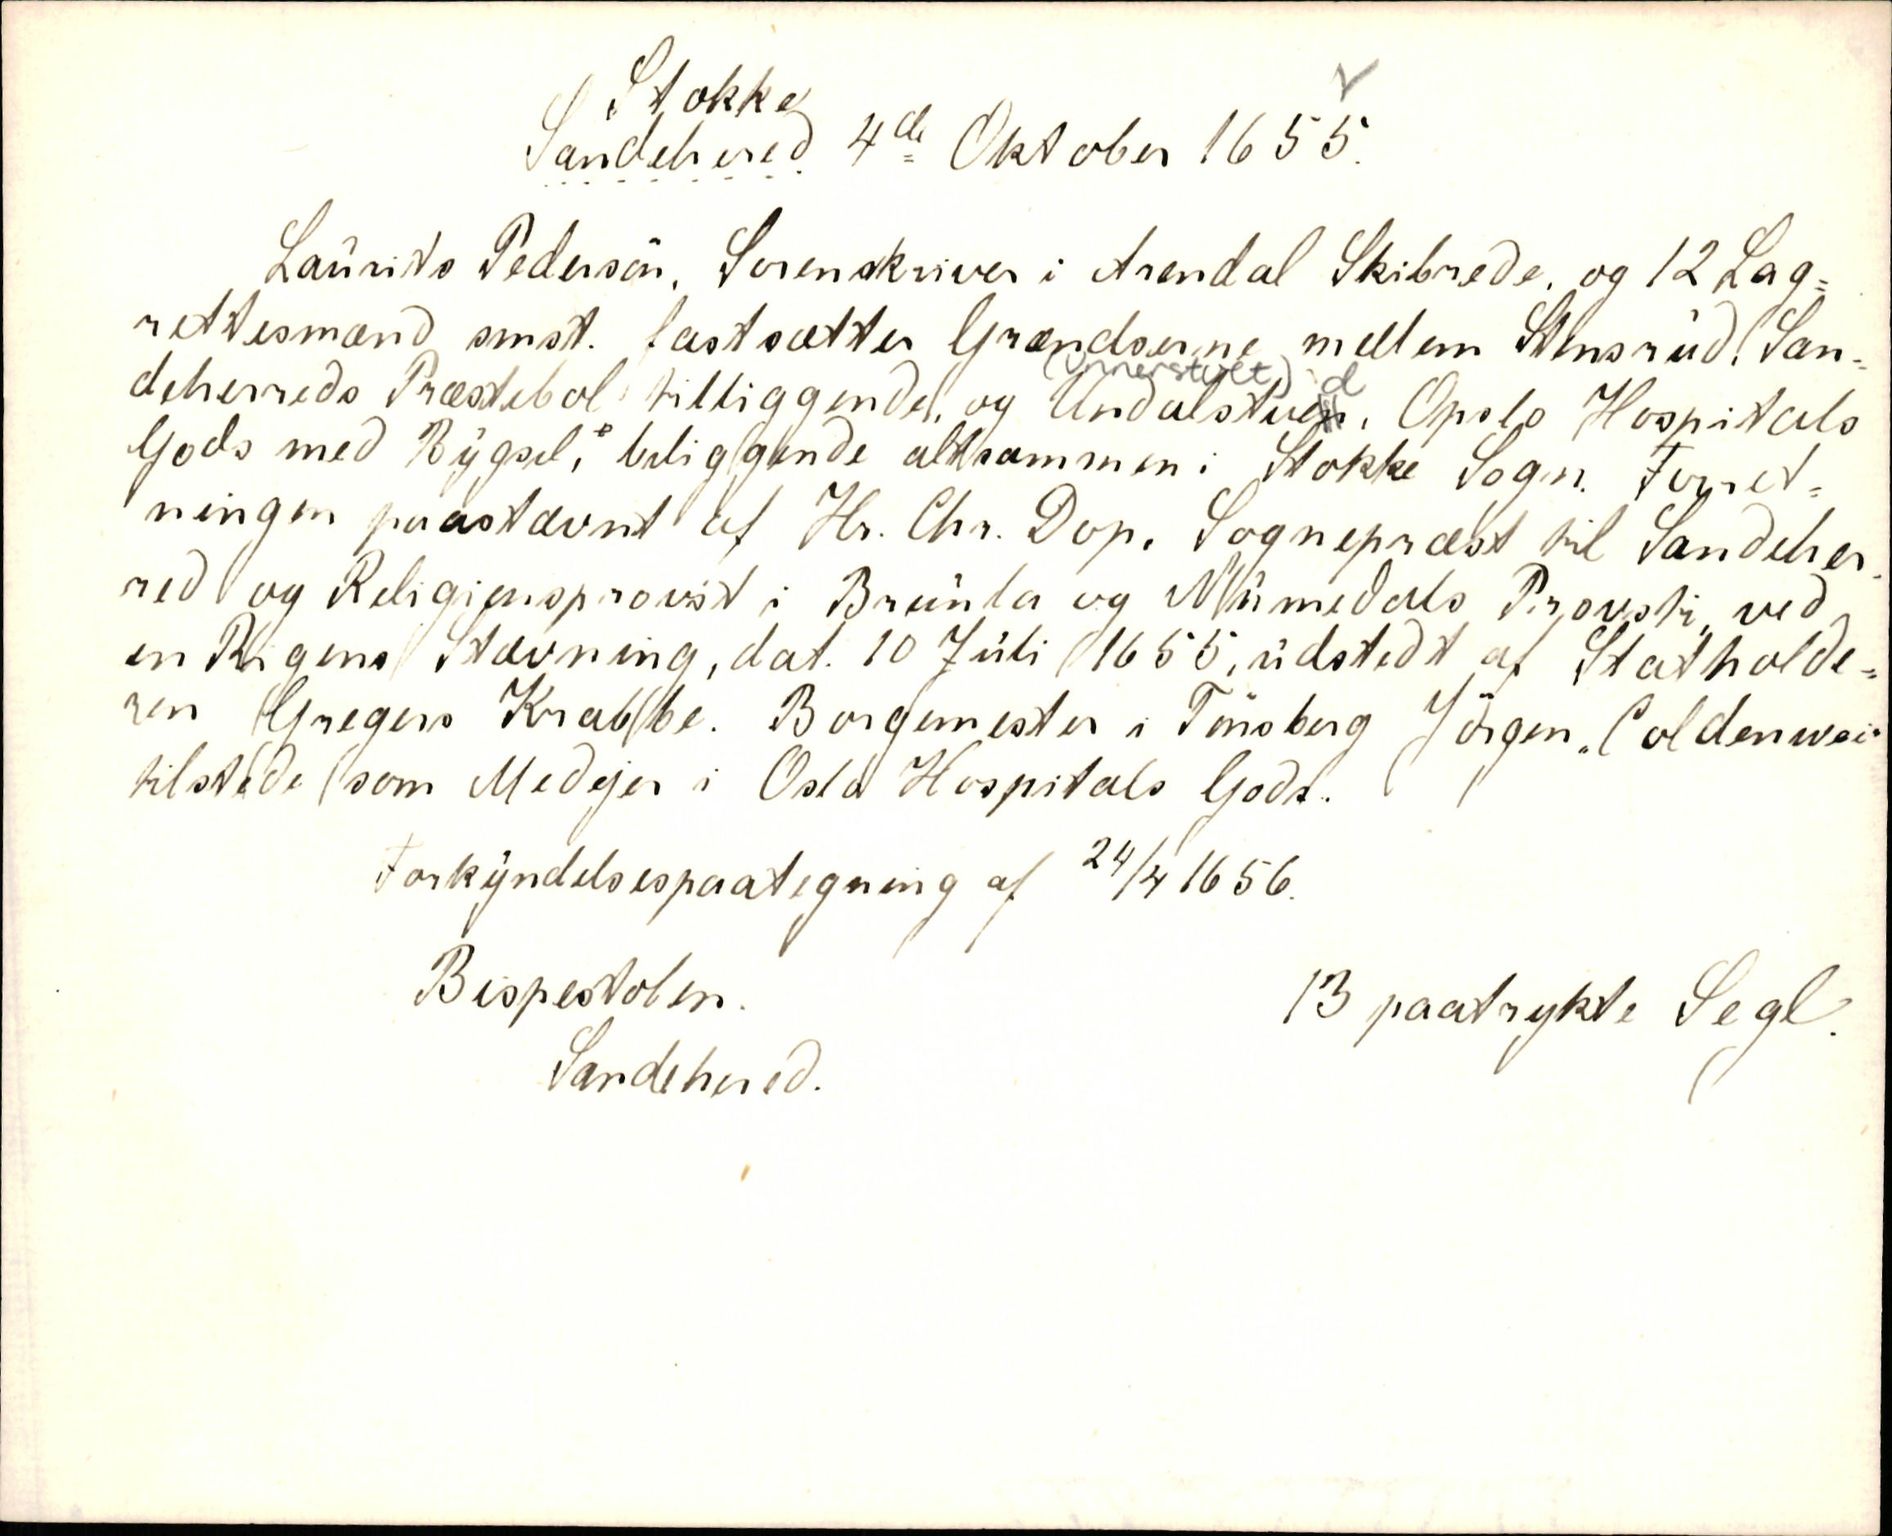 Stokke
Sandehered 4de Oktober 1655.
Laurits Pedersön, Sorenskriver i Arendal Skibrede, og 12 Lag=
rettesmænd smst. fastsætter Grændserne mellem Stensrud, San=
deherreds Præstebol tilliggende, og Undalstuen, Opslo Hospitals
(Unnerstvet) d
Gods med Bygsel, beliggende altsammen i Stokke Sogn. Forret=
ningen paastævnt af Hr. Chr. Dop, Sognepræst til Sandeher=
red og Religionsprovst i Brunla og Numedals Provsti, ved
en Rigens Stævning, dat. 10 Juli 1655, udstedt af Statholde=
ren Gregers Krabbe. Borgemester i Tönsberg Jörgen Coldenwei
tilstede som Medejer i Oslo Hospitals Gods.
Forkyndelsespaategning af 24/4 1656.
Bispestolen. 13 paatrykte Segl.
Sandehered.